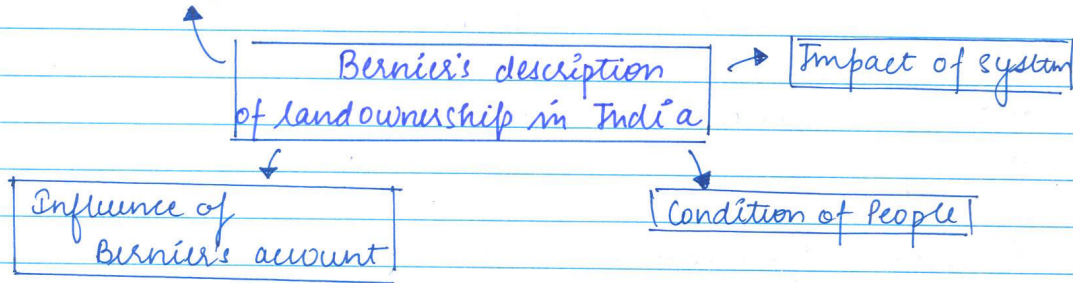 Bernier's description
of landownership in India
Impact of system
Influence of
Bernier's account
Condition of People